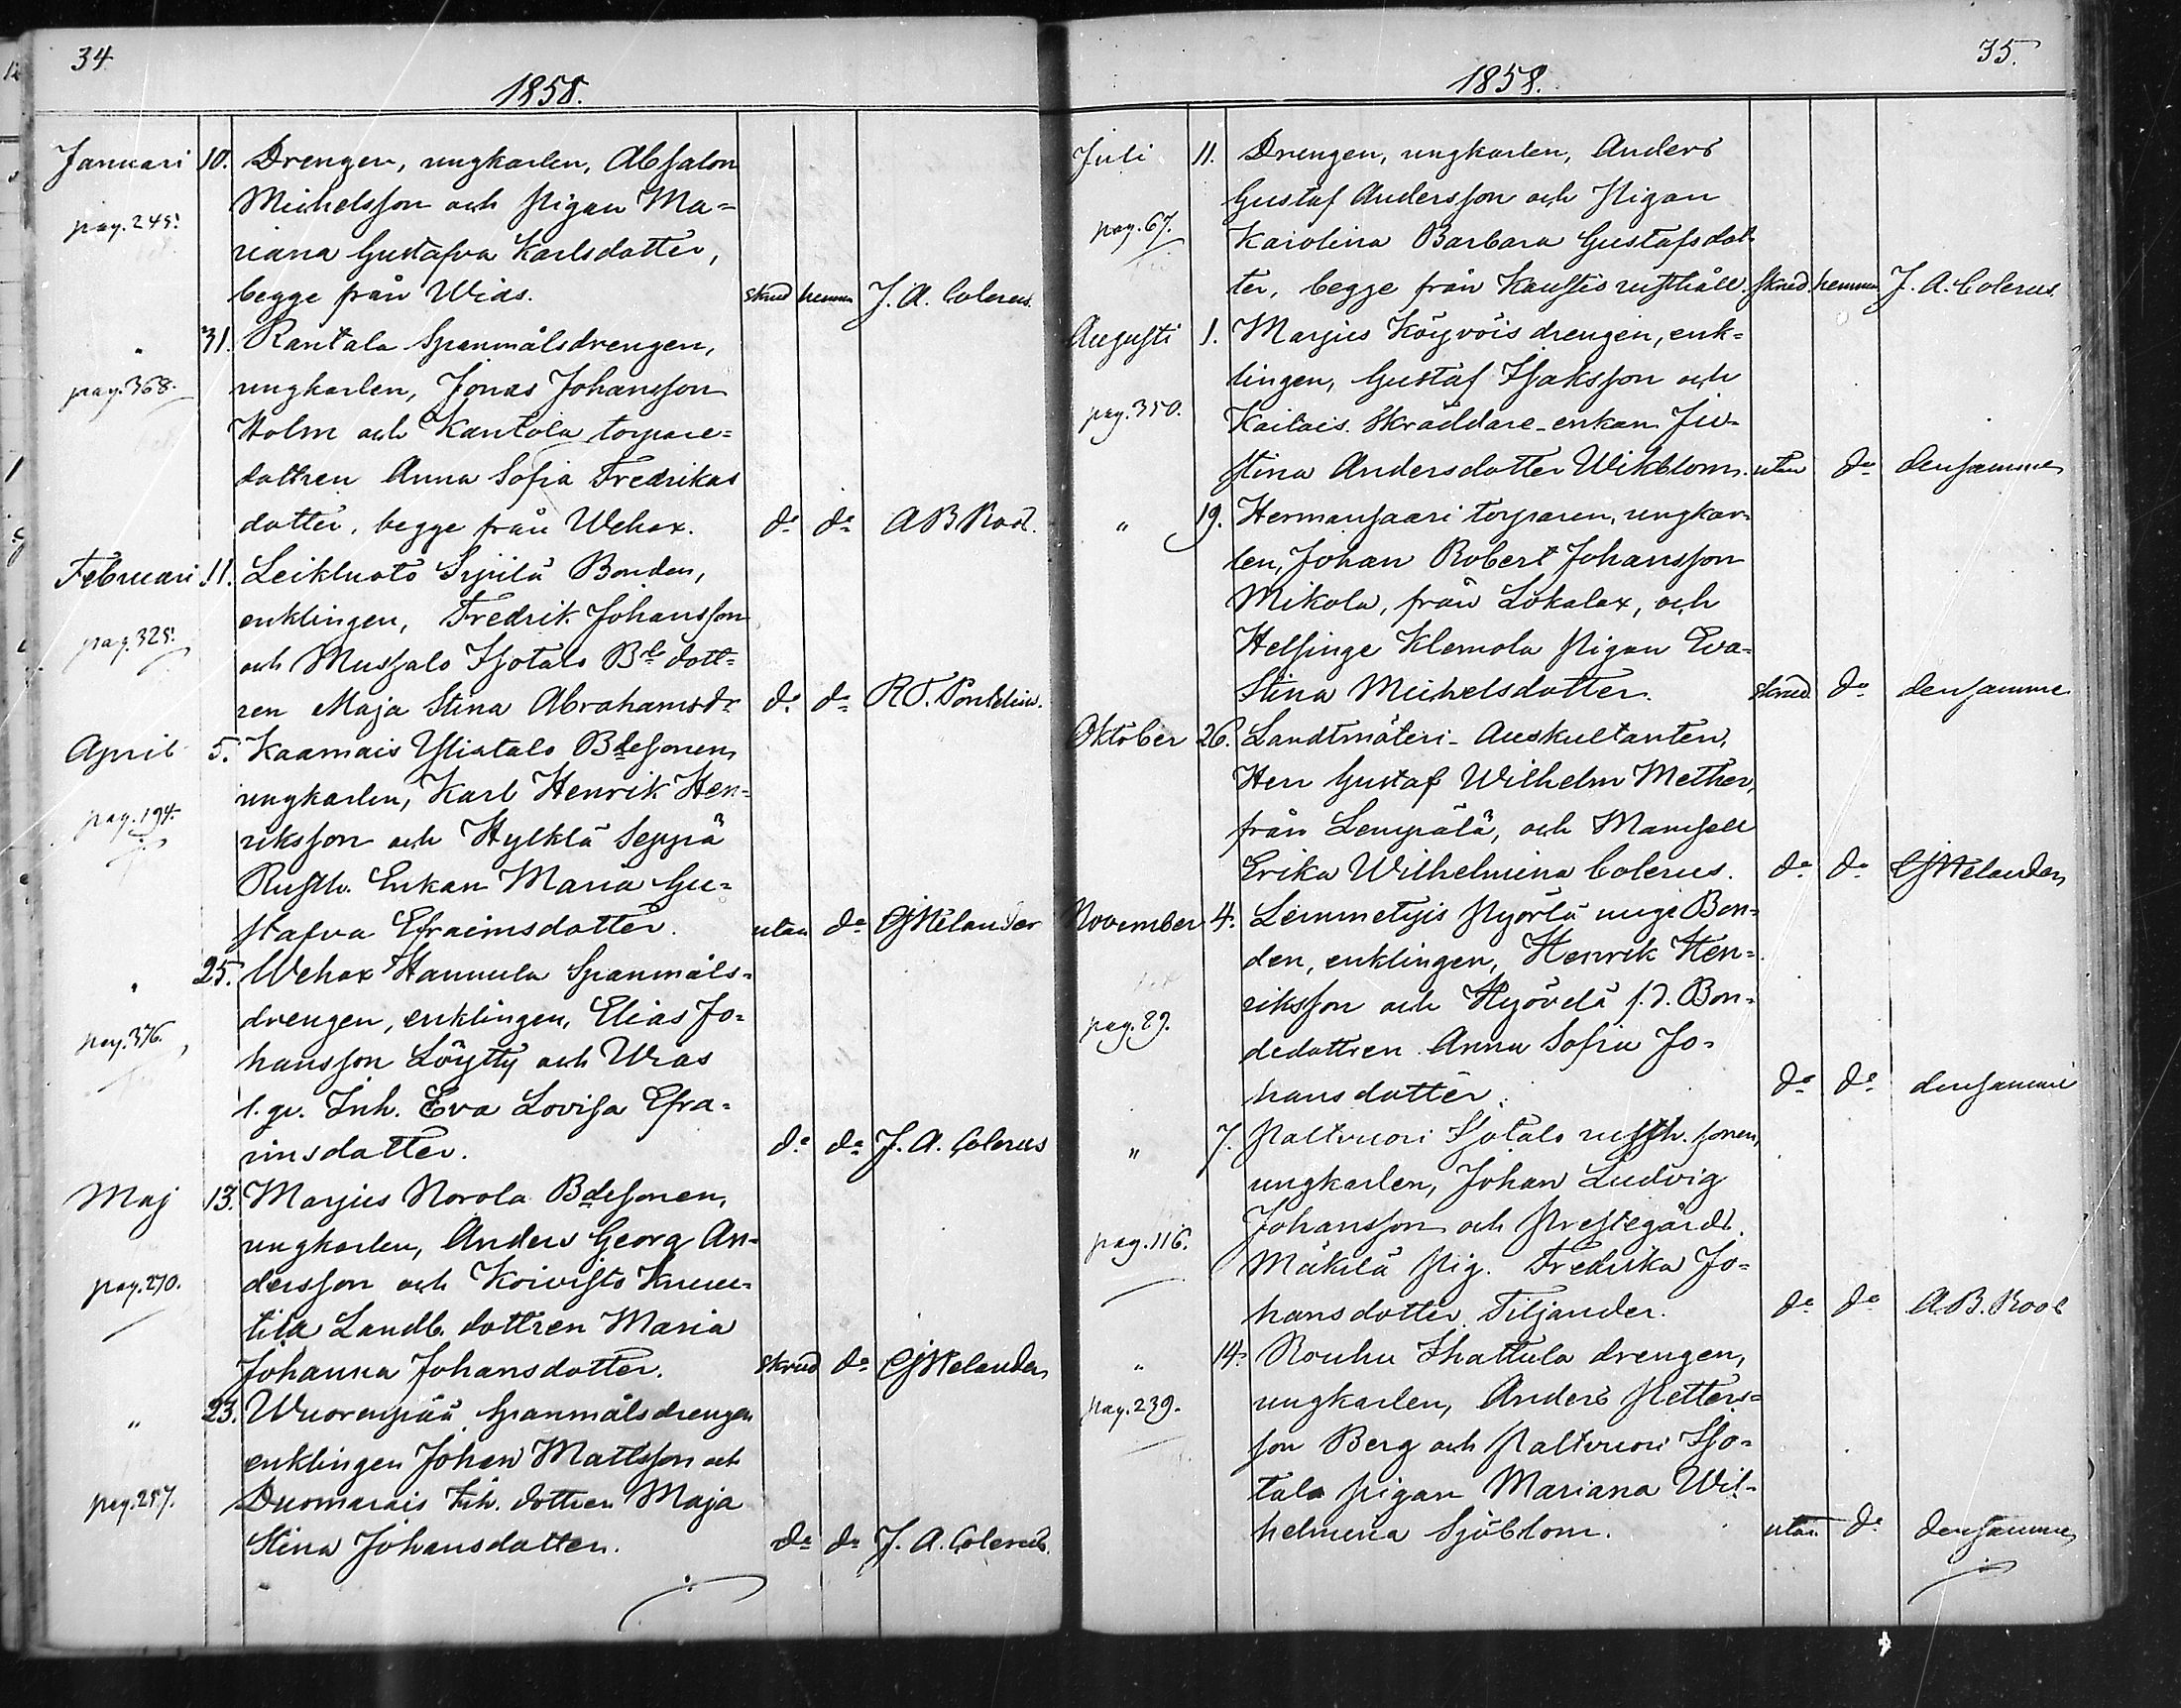 34
1858.
Januari 10. Drengen, ungkarlen, Absalon
Michelsson och Pigan Ma=
pag. 245.
riana Gustafva Karlsdotter,
begge från Wias. skrud hemma J. A. Colerus.
" 31. Rantala Spanmålsdrengen,
pag. 368. ungkarlen, Jonas Johansson
Holm och Kantola torpare=
dottren Anna Sofia Fredrikas
dotter, begge från Wehax. do do A B Roos.
Februari 11. Leikluoto Sipilä Bonden,
enklingen, Fredrik Johansson
pag. 325.
och Mussalo Isotalo Bde dott=
ren Maja Stina Abrahamsdr do do R. T.
April 5. Kaamais Ylistalo Bdesonen,
ungkarlen, Karl Henrik Hen=
pag. 194.
riksson och Hylklä Seppä
Rusth. Enkan Maria Gu=
stafva Efraimsdotter. utan do CJHelander
" 25. Wehax Hannula Spanmåls=
drengen, enklingen, Elias Jo=
pag. 376.
hansson Löytty och Wias
Inh. Eva Lovisa Efra=
imsdotter. do do J. A. Colerus
Maj 13. Marjus Norola Bdesonen,
ungkarlen, Anders Georg An=
pag. 270. dersson och Koivisto Knuu=
tila Landb. dottren Maria
Johanna Johansdotter. skrud do CJHelander
" 23. Wuorenpää Spanmålsdrengen
enklingen Johan Mattsson och
pag. 257. Duomarais Inh. dottren Maja
Stina Johansdotter. do do J. A. Colerus.
35.
1858.
Juli 11. Drengen, ungkarlen, Anders
Gustaf Andersson och Pigan
pag. 67.
Karolina Barbara Gustafsdot-
ter, begge från Kaustio rusthåll. skrud. hemma J. A. Colerus.
Augusti 1. Marjus Köyvöis drengen, enk=
lingen, Gustaf Isaksson och
pag. 350. Kailais Skräddare-enkan Ju-
stina Andersdotter Wikblom. utan do densamme
" 19. Hermansaari torparen, ungkar-
len, Johan Robert Johansson
Mikola, från Lokalax, och
Helsinge Klemola Pigan Eva-
Stina Michelsdotter. skrud. do densamme
Oktober 26. Landtmäteri-Auskultanten,
Herr Gustaf Wilhelm Mether,
från Lempälä, och Mamsell
Erika Wilhelmina Colerus. do do CJHelander
November 4. Lemmetyis Pyörlä unge Bon=
den, enklingen, Henrik Hen=
riksson och Hyövelä f.d. Bon=
pag. 89.
dedottren Anna Sofia Jo=
hansdotter. do do densamme
" 7. Paltvuori Isotalo rusth. sonen,
ungkarlen, Johan Ludvig
Johansson och Prestegårds.
pag. 116.
Mäkilä Pig. Fredrika Jo=
hansdotter Tiljander. do do A.B. Roos
" 14. Rouhu Ihattula drengen,
pag. 239. ungkarlen, Anders Petters=
son Berg och Paltvuori Iso=
talo pigan Mariana Wil-
helmina Sjöblom. utan do densamme